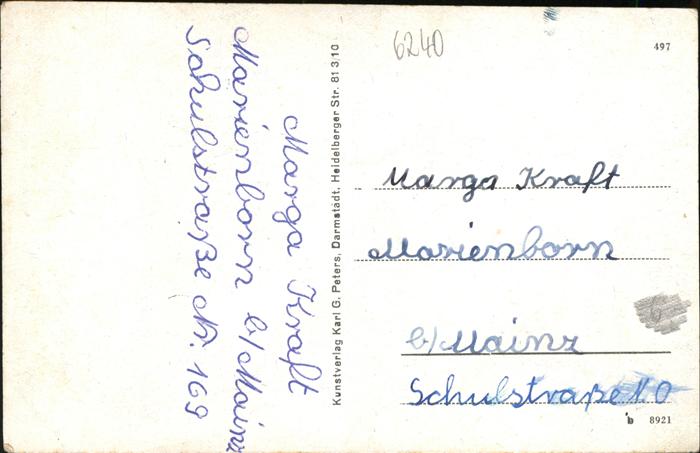 Marga Kraft
Marienborn b/Mainz
Schulstraße Nr. 169
Kunstverlag Karl G. Peters, Darmstadt, Heidelberger Str. 81 3.10
6240
497
Marga Kraft
Marienborn
b/Mainz
Schulstraße
6
b 8921